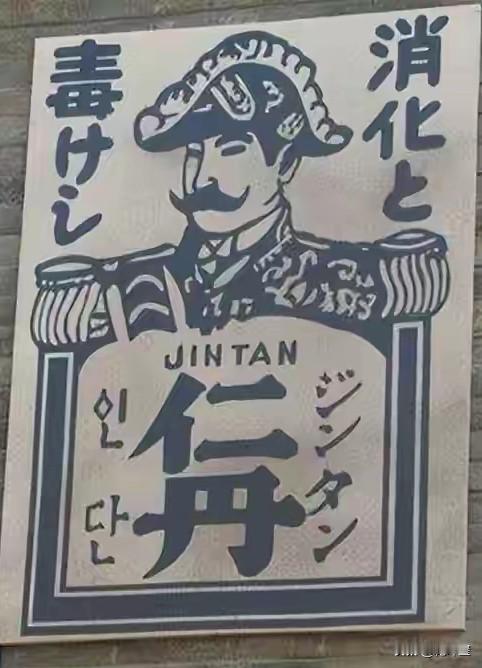 消化と
毒けし
JINTAN
ジンタン
仁丹
인단